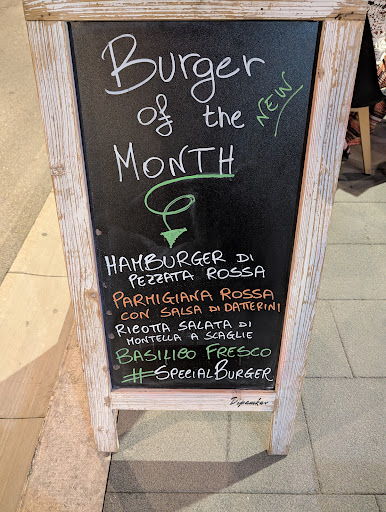 Burger
of the NEW
MONTH
HAMBURGER DI
PEZZATA ROSSA
PARMIGIANA ROSSA
CON SALSA DI DATTERINI
RICOTTA SALATA DI
MONTELLA A SCAGLIE
BASILICO FRESCO
#SPECIALBURGER